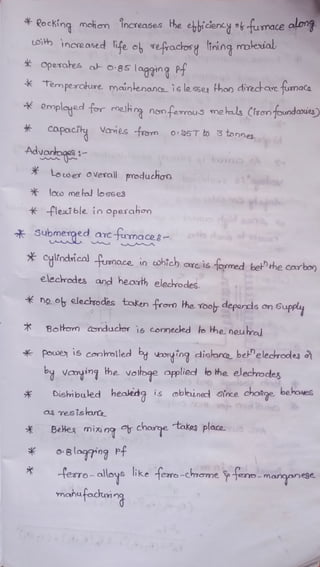 * Rocking motion increases the efficiency of furnace along
with increased life of refractory lining material
* operates at 0.85 lagging pf
* Temperature maintenance is lesser than direct arc furnace
* employed for melting non ferrous metals (iron foundaries)
* capacity varies from 0.25T to 3 tonnes
Advantages :-
* Lower overall production
* low metal losses
* flexible in operation
* submerged arc furnaces :-
* cylindrical furnace in which arc is formed betn the carbon
electrodes and hearth electrodes.
* no. of electrodes taken from the roof depends on supply
* Bottom conductor is connected to the neutral
* power is controlled by varying distance betn electrodes or
by varying the voltage applied to the electrodes
* Distributed heating is obtained since charge behaves
as resistance
* Better mixing of charge takes place.
* 0.8 lagging pf
* ferro-alloys like ferro-chrome & ferro-manganese
manufacturing